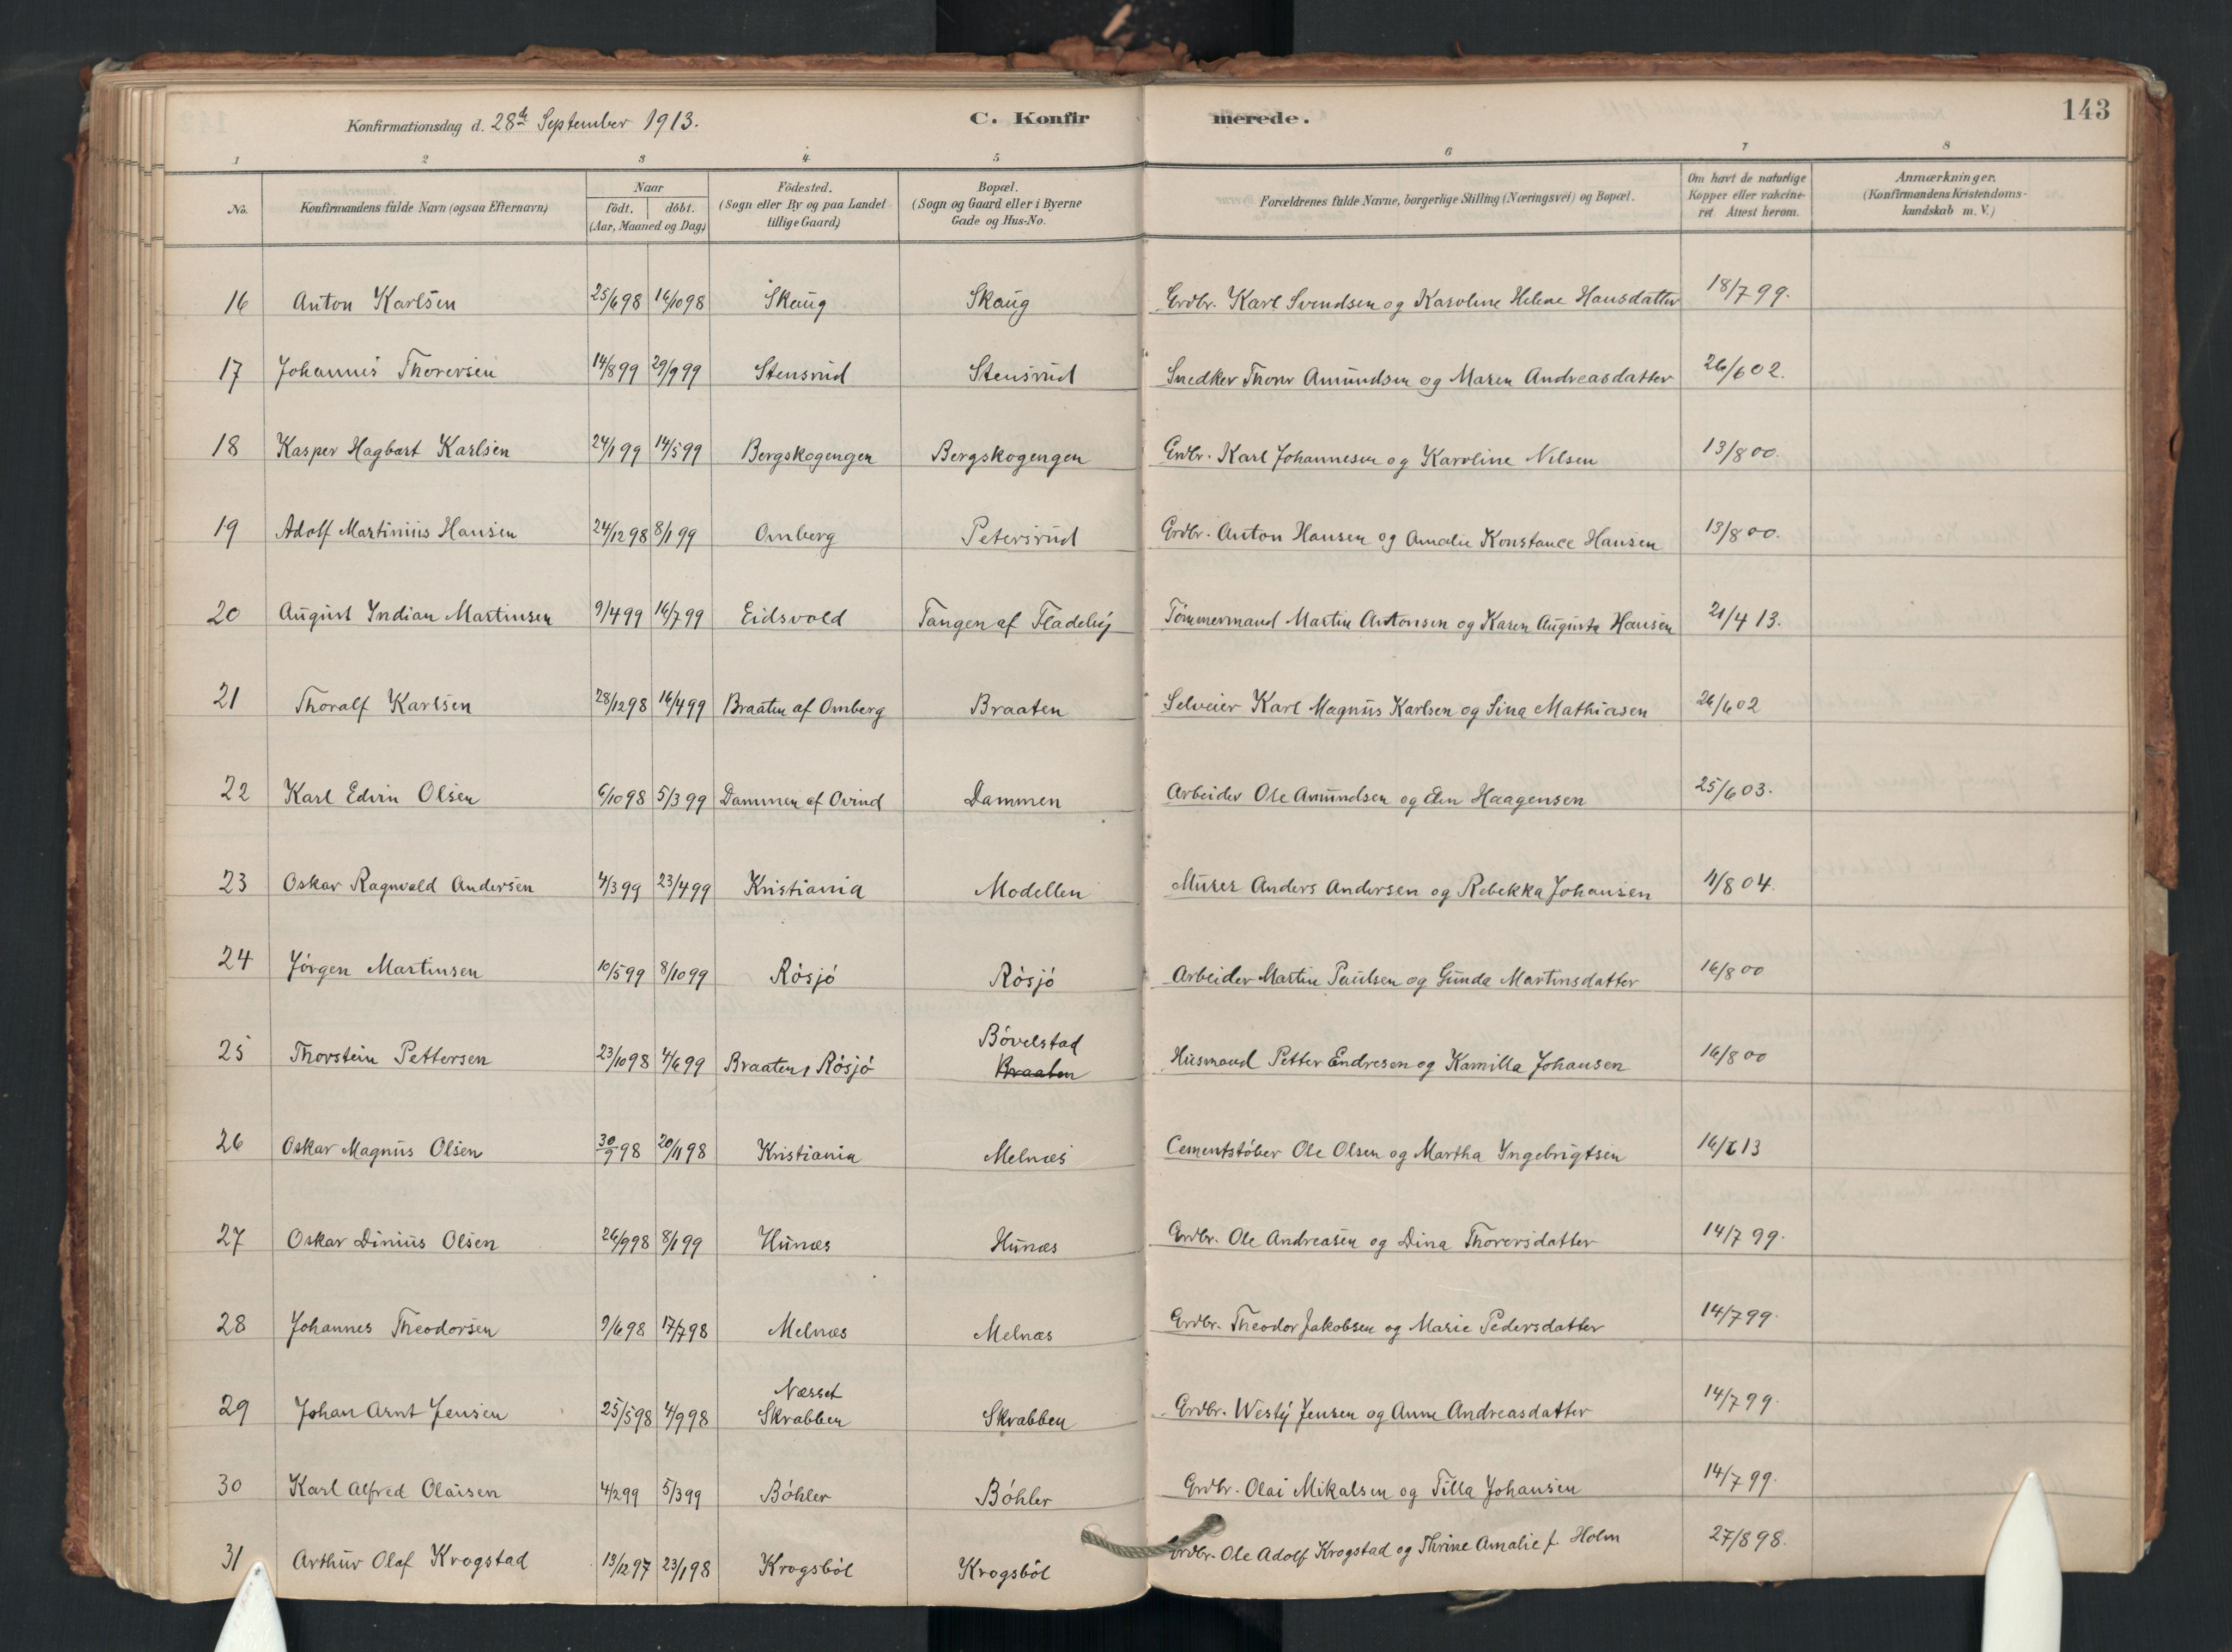 Konfirmationsdag d. 28de September 1913. C. Konfirmerede. 143
1 2 3 4 5 6 7 8
No. Konfirmandens fulde Navn (ogsaa Efternavn) Naar födt. döbt. (Aar, Maaned og Dag) Födested. (Sogn eller By og paa Landet tillige Gaard) Bopæl. (Sogn og Gaard eller i Byerne Gade og Hus-No. Forældrenes fulde Navne, borgerlige Stilling (Næringsvei) og Bopæl. Om havt de naturlige Kopper eller vakcineret Attest herom. Anmærkninger. (Konfirmandens Kristendomskundskab m. V.)
16 Anton Karlsen 25/6 98 16/10 98 Skaug Skaug Grdbr. Karl Svendsen og Karoline Helene Hansdatter 18/7 99.
17 Johannes Thorersen 14/8 99 29/9 99 Stensrud Stensrud Snedker Thorer Amundsen og Maren Andreasdatter 26/6 02.
18 Kasper Hagbart Karlsen 24/1 99 14/5 99 Bergskogengen Bergskogengen Grdbr. Karl Johannesen og Karoline Nilsen 13/8 00.
19 Adolf Martinius Hansen 24/12 98 8/1 99 Omberg Petersrud Grdbr. Anton Hansen og Amalie Konstance Hansen 13/8 00.
20 August Yndian Martinsen 9/4 99 16/7 99 Eidsvold Tangen af Fladeby Tömmermand Martin Antonsen og Karen Augusta Hansen 21/4 13.
21 Thoralf Karlsen 28/12 98 16/4 99 Braaten af Omberg Braaten Selveier Karl Magnus Karlsen og Sina Mathiasen 26/6 02
22 Karl Edvin Olsen 6/10 98 5/3 99 Dammen af Ovind Dammen Arbeider Ole Amundsen og Elen Haagensen 25/6 03.
23 Oskar Ragnvald Andersen 4/3 99 23/4 99 Kristiania Modellen Murer Anders Andersen og Rebekka Johansen 11/8 04.
24 Jörgen Martinsen 10/5 99 8/10 99 Rösjö Rösjö Arbeider Martin Paulsen og Gunda Martinsdatter 16/8 00
25 Thorstein Pettersen 23/10 98 4/6 99 Braaten, Rösjö Bövelstad Braaten Husmand Petter Endresen og Kamilla Johansen 16/8 00
26 Oskar Magnus Olsen 30/9 98 20/11 98 Kristiania Melnæs Cementstöber Ole Olsen og Martha Yngebrigtsen 16/6 13
27 Oskar Dinius Olsen 26/9 98 8/1 99 Hunæs Hunæs Grdbr. Ole Andreasen og Dina Thorersdatter 14/7 99.
28 Johannes Theodorsen 9/6 98 17/7 98 Melnæs Melnæs Grdbr. Theodor Jakobsen og Marie Pedersdatter 14/7 99.
29 Johan Arnt Jensen 25/5 98 4/9 98 Næsset Skrabben Skrabben Grdbr. Westy Jensen og Anne Andreasdatter 14/7 99.
30 Karl Alfred Olaisen 4/2 99 5/3 99 Böhler Böhler Grdbr. Olai Mikalsen og Tilla Johansen 14/7 99.
31 Arthur Olaf Krogstad 13/12 97 23/1 98 Krogsböl Krogsböl Grdbr. Ole Adolf Krogstad og Thrine Amalie f. Holm 27/8 98.